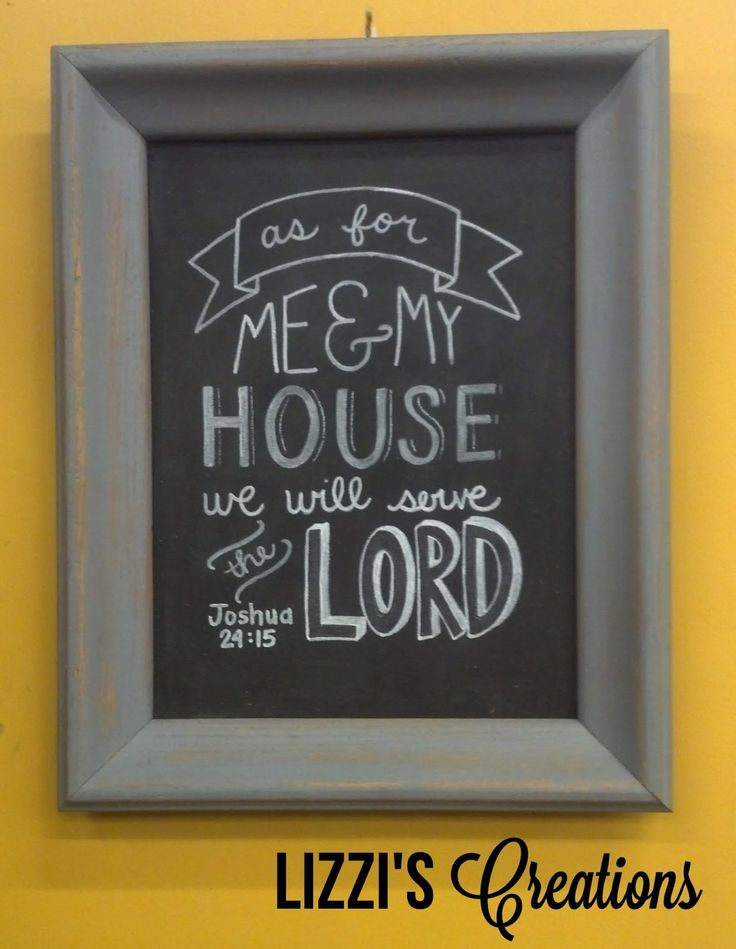 as for
ME & MY
HOUSE
we will serve
the LORD
Joshua
24:15
LIZZI'S Creations